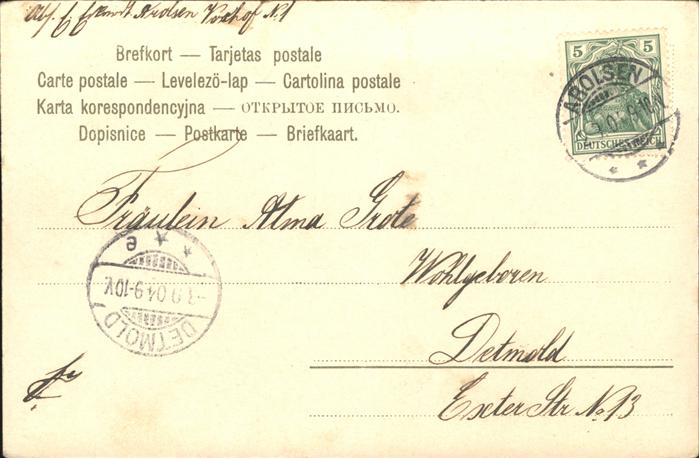 Abs. E. Arolsen N.1
Brefkort — Tarjetas postale
Carte postale — Levelezö-lap — Cartolina postale
Karta korespondencyjna — ОТКРЫТОЕ ПИСЬМО.
Dopisnice — Postkarte — Briefkaart.
5 5
DEUTSCHES REICH
AROLSEN
Fräulein Alma Grote
Wohlgeboren
Detmold
Exter Str. No 13
DETMOLD
-3.9.04.9-10V.
e